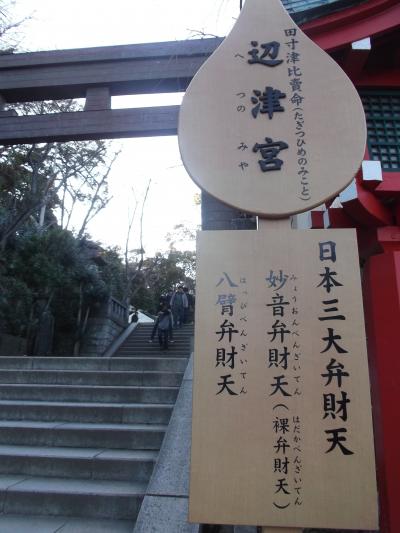 田寸津比賣命(たぎつひめのみこと)
辺津宮
へつのみや
日本三大弁財天
妙音弁財天(裸弁財天)
みょうおんべんざいてん はだかべんざいてん
八臂弁財天
はっぴべんざいてん